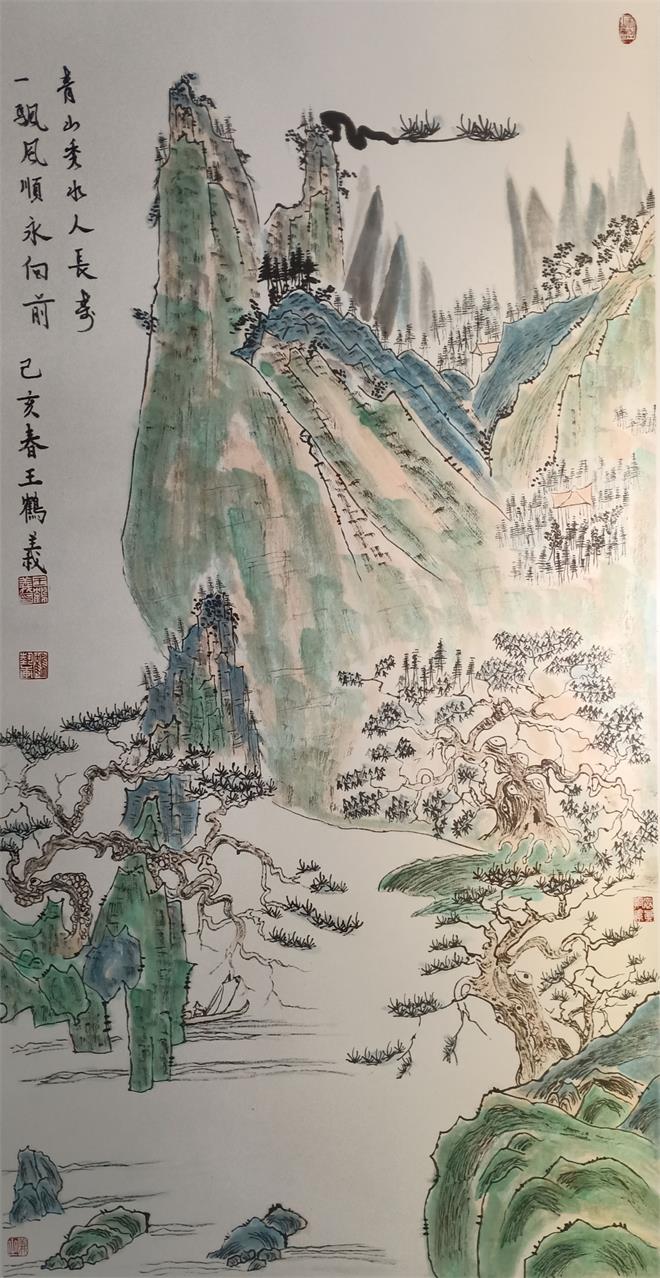 青山秀水人長寿
一颿风順永向前 己亥春王鶴義